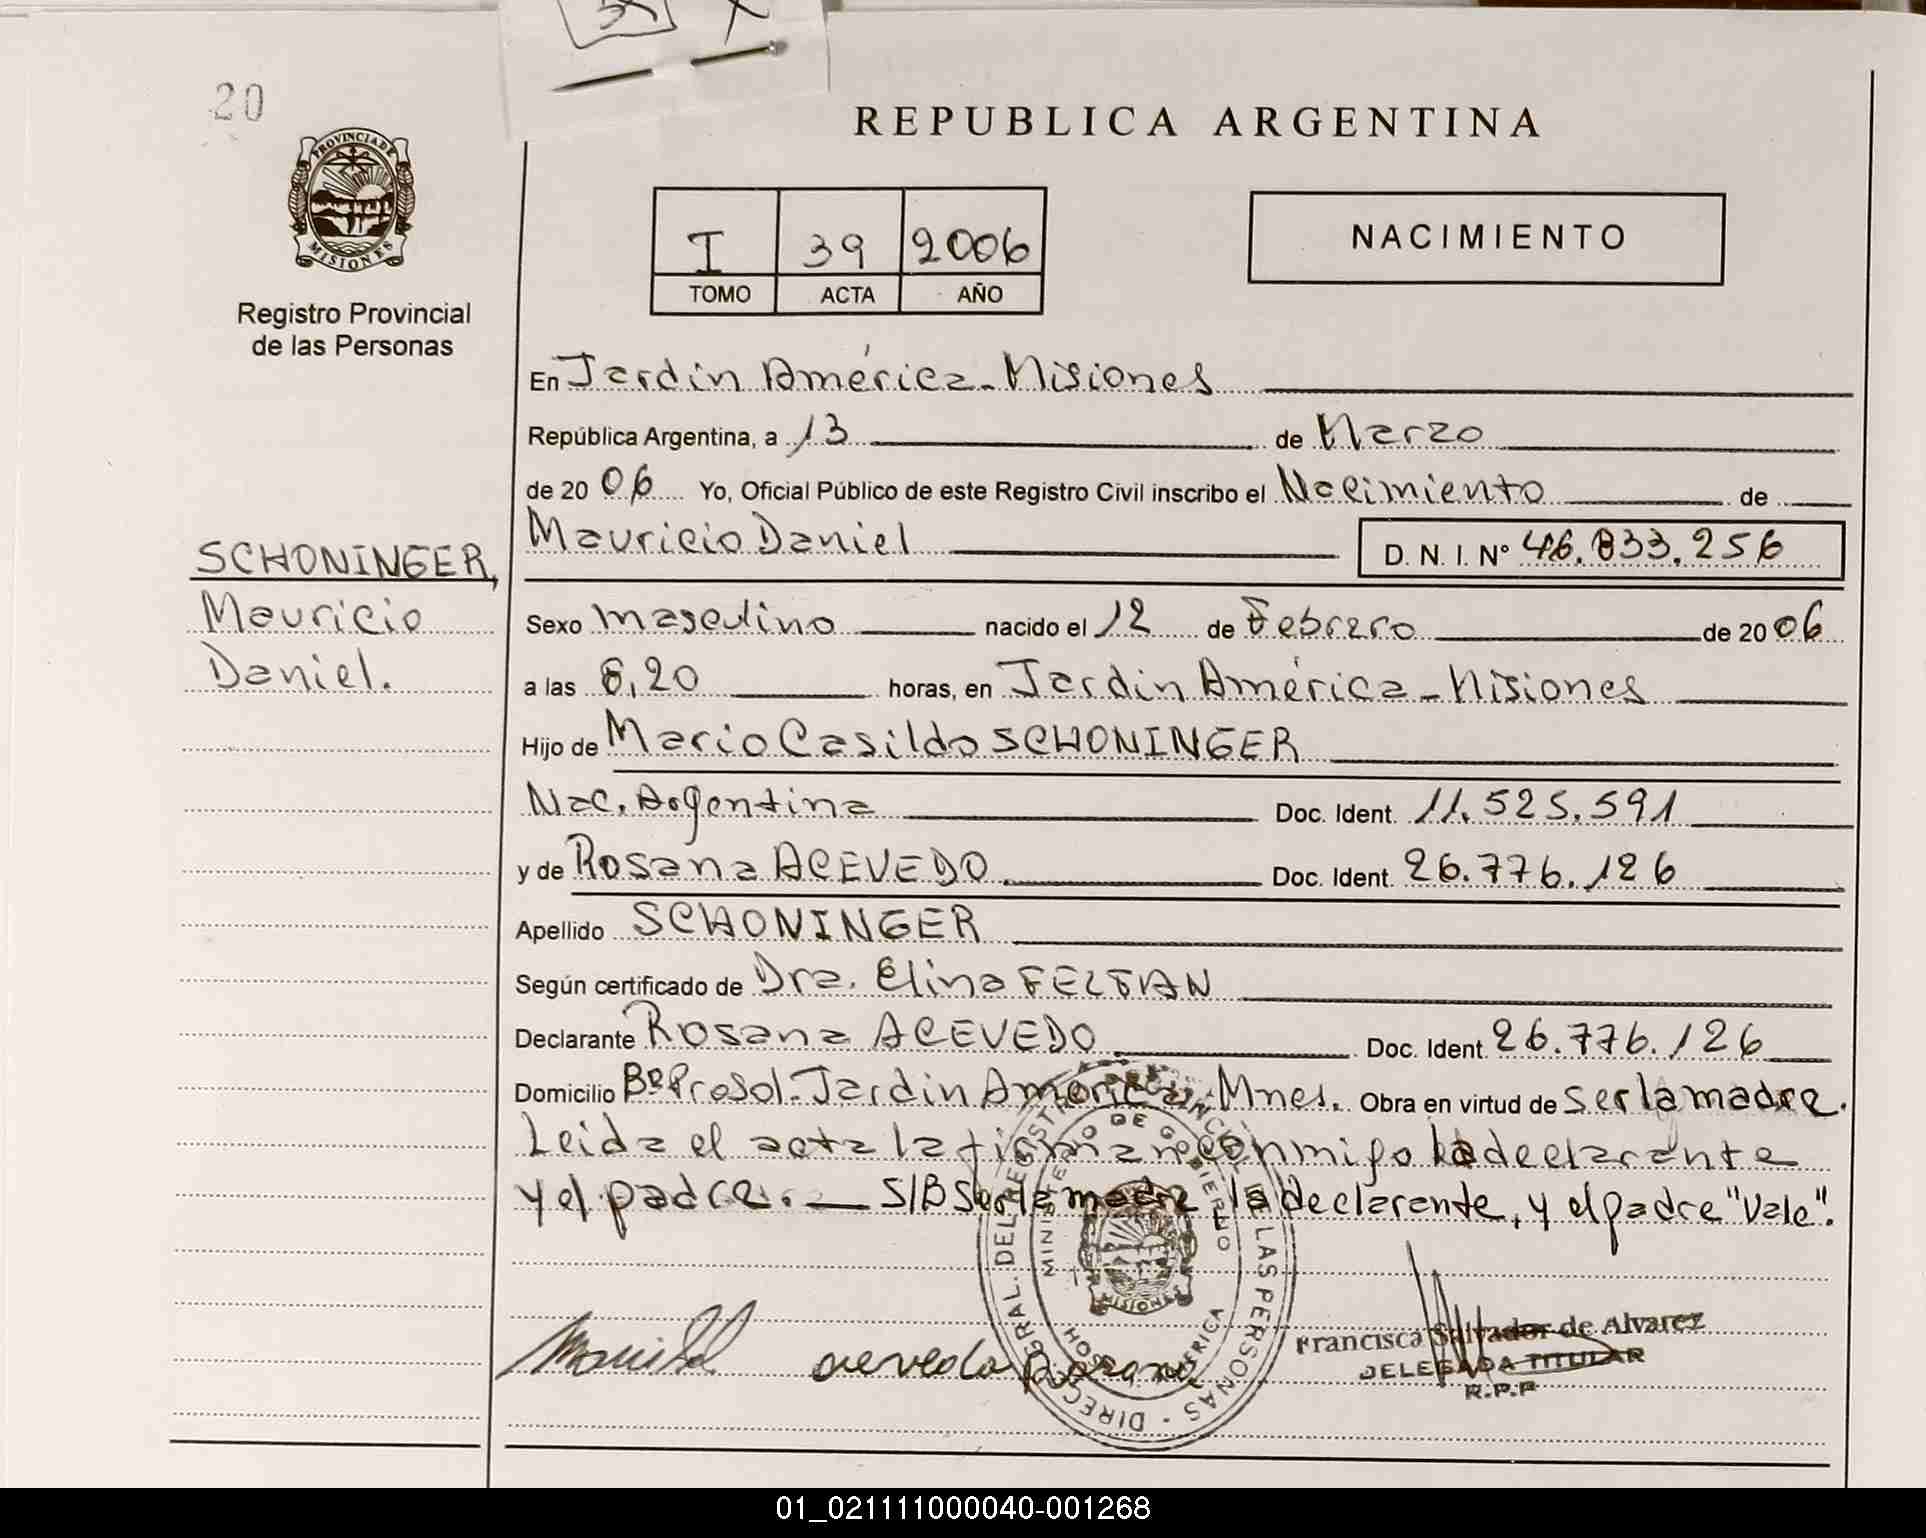 20
REPUBLICA ARGENTINA
PROVINCIA DE
MISIONES
Registro Provincial
de las Personas
I 39 2006
TOMO ACTA AÑO
NACIMIENTO
En Jardin América - Misiones
República Argentina, a 13 de Marzo
de 2006 Yo, Oficial Público de este Registro Civil inscribo el Nacimiento de
Mauricio Daniel D. N. I. N° 46.833.256
SCHONINGER,
Mauricio
Daniel.
Sexo masculino nacido el 12 de Febrero de 2006
a las 8,20 horas, en Jardin América - Misiones
Hijo de Mario Casildo SCHONINGER
Nac. Argentina Doc. Ident. 11.525.591
y de Rosana ACEVEDO Doc. Ident. 26.776.126
Apellido SCHONINGER
Según certificado de Dra. Elina FELTAN
Declarante Rosana ACEVEDO Doc. Ident. 26.776.126
Domicilio B° Prosol. Jardin America. Mnes. Obra en virtud de ser la madre.
Leida el acta la firman conmigo la declarante
y el padre. — S/B Ser la madre, la declarante, y el padre "Vale".
acevedo Rosana
Francisca Salvador de Alvarez
DELEGADA TITULAR
R.P.P
MINISTERIO DE GOBIERNO
MISIONES
01_021111000040-001268